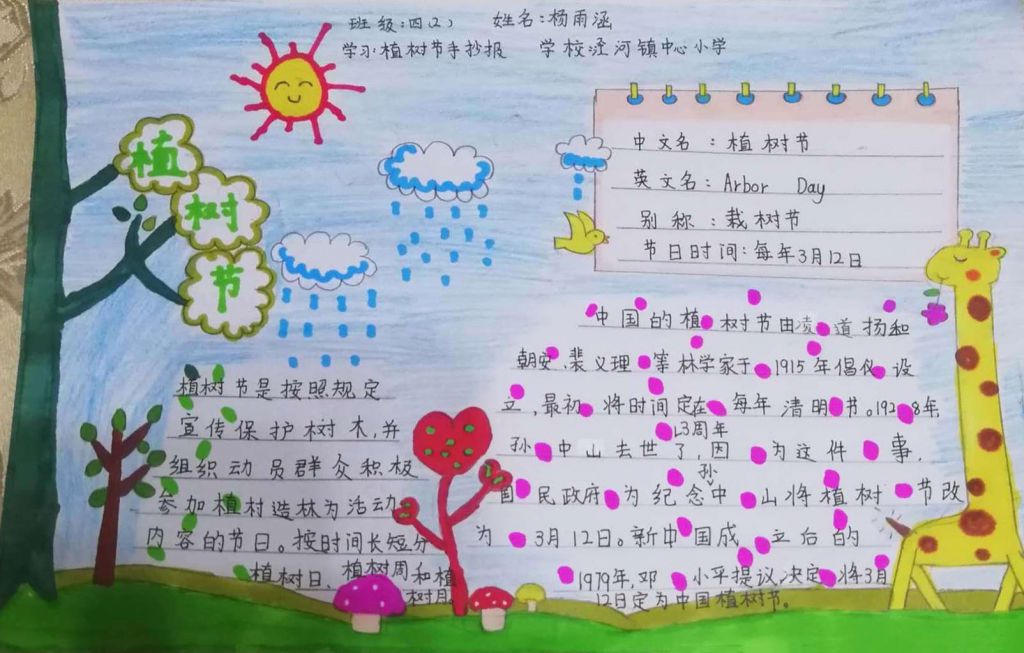 班级:四(2) 姓名:杨雨涵
学习:植树节手抄报 学校:泾河镇中心小学
植
树
节
中文名:植树节
英文名:Arbor Day
别称:栽树节
节日时间:每年3月12日
植树节是按照规定
宣传保护树木,并
组织动员群众积极
参加植村造林为活动
内容的节日。按时间长短分
植树日、植树周和植
树月
中国的植树节由凌道扬和
朝安、裴义理等林学家于1915年倡仪设
立,最初将时间定在每年清明节。1928年
孙中山去世了,因为这件事,
3周年
国民政府为纪念中山将植树节改
孙
为3月12日。新中国成立后的
1979年,邓小平提议决定将3月
12日定为中国植树节。